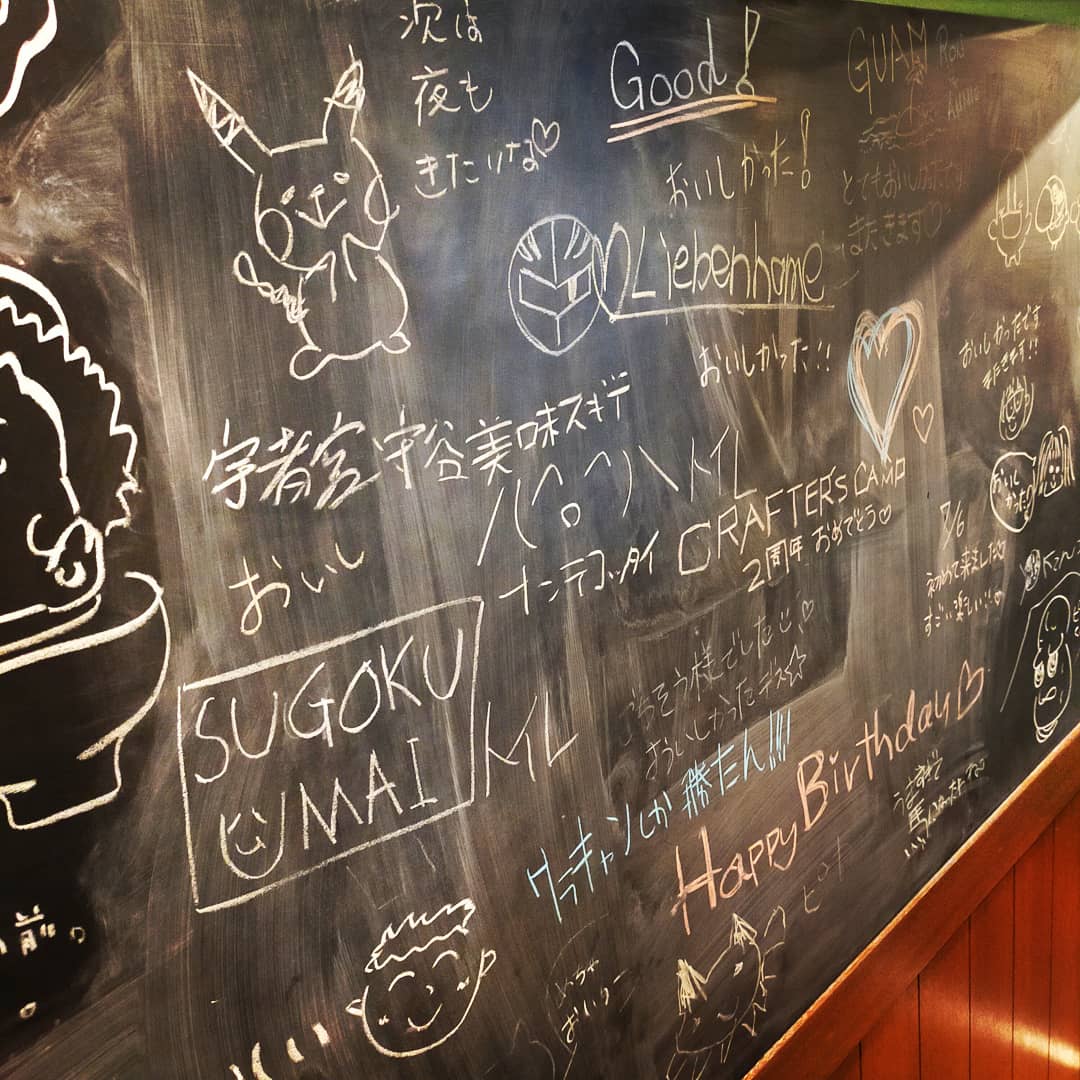 次は
夜も
きたいな♡
Good!
おいしかった!
Liebenhame
おいしかった!!
GUAM
とてもおいしかったです
またきます♡
おいしかったです
またきます!!
おいし
かった!
宇都宮 宇谷 美味スギテ
ハ(^o^)ハ トイレ
ナンテコッタイ
CRAFTER'S CAMP
2周年 おめでとう♡
7/6
初めて来ました
すごい楽しい!!
おいし
SUGOKU
UMAI
トイレ
ごちそう様でした
おいしかったデス☆
クラキャンしか勝たん!!!
Happy Birthday♡
うますぎて
めちゃ
おいしー